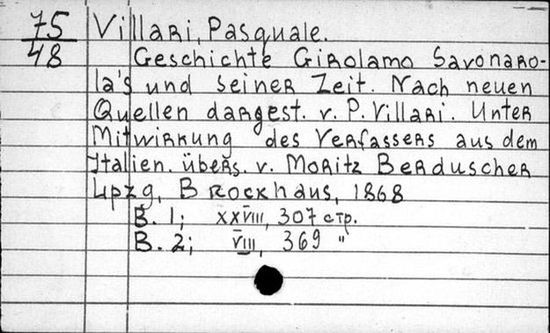 75
48
Villari, Pasquale.
Geschichte Girolamo Savonaro-
la's und seiner Zeit. Nach neuen
Quellen dargest. v. P. Villari. Unter
Mitwirkung des Verfassers aus dem
Italien. übers. v. Moritz Berduscher
Lpzg, Brockhaus, 1868
B. 1; XXVIII, 307 стр.
B. 2; VIII, 369 "